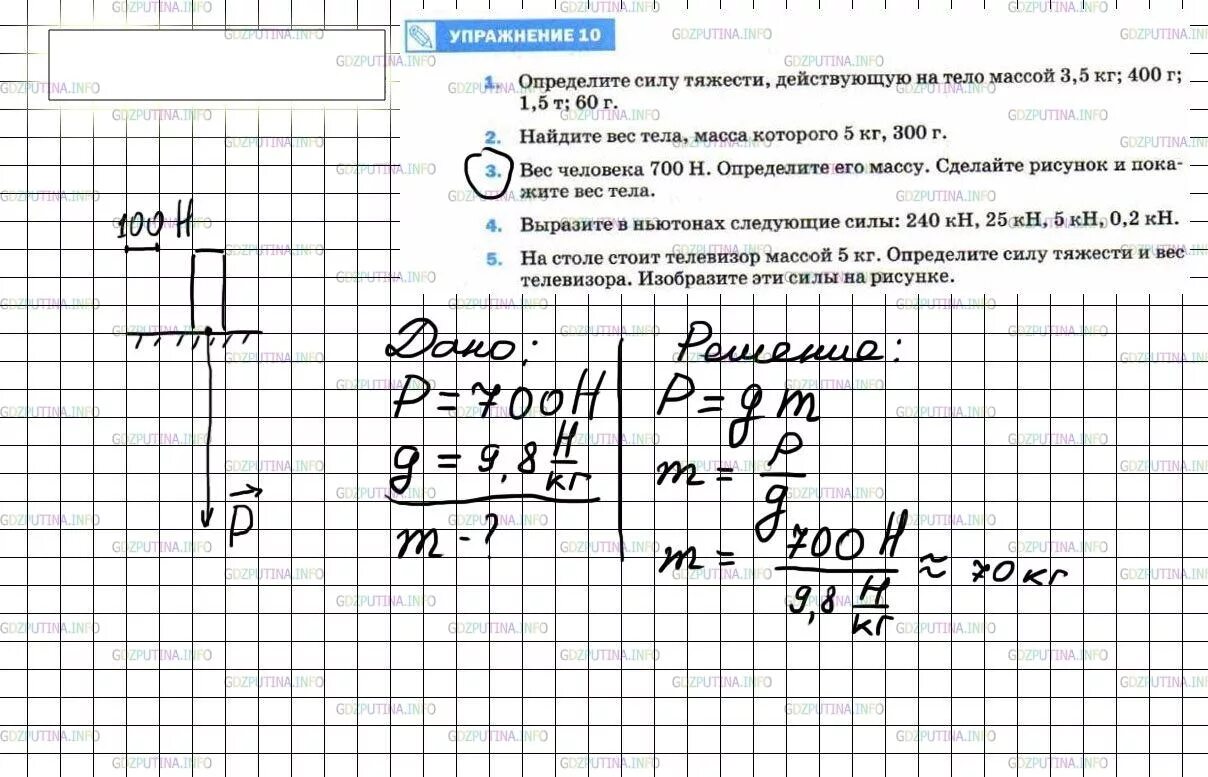 УПРАЖНЕНИЕ 10
1. Определите силу тяжести, действующую на тело массой 3,5 кг; 400 г;
1,5 т; 60 г.
2. Найдите вес тела, масса которого 5 кг, 300 г.
3. Вес человека 700 Н. Определите его массу. Сделайте рисунок и пока-
жите вес тела.
4. Выразите в ньютонах следующие силы: 240 кН, 25 кН, 5 кН, 0,2 кН.
5. На столе стоит телевизор массой 5 кг. Определите силу тяжести и вес
телевизора. Изобразите эти силы на рисунке.
100 Н
P
Дано:
P = 700 Н
g = 9,8 Н/кг
m - ?
Решение:
P = g m
m = P/g
m = 700 Н / 9,8 Н/кг ≈ 70 кг
GDZPUTINA.INFO